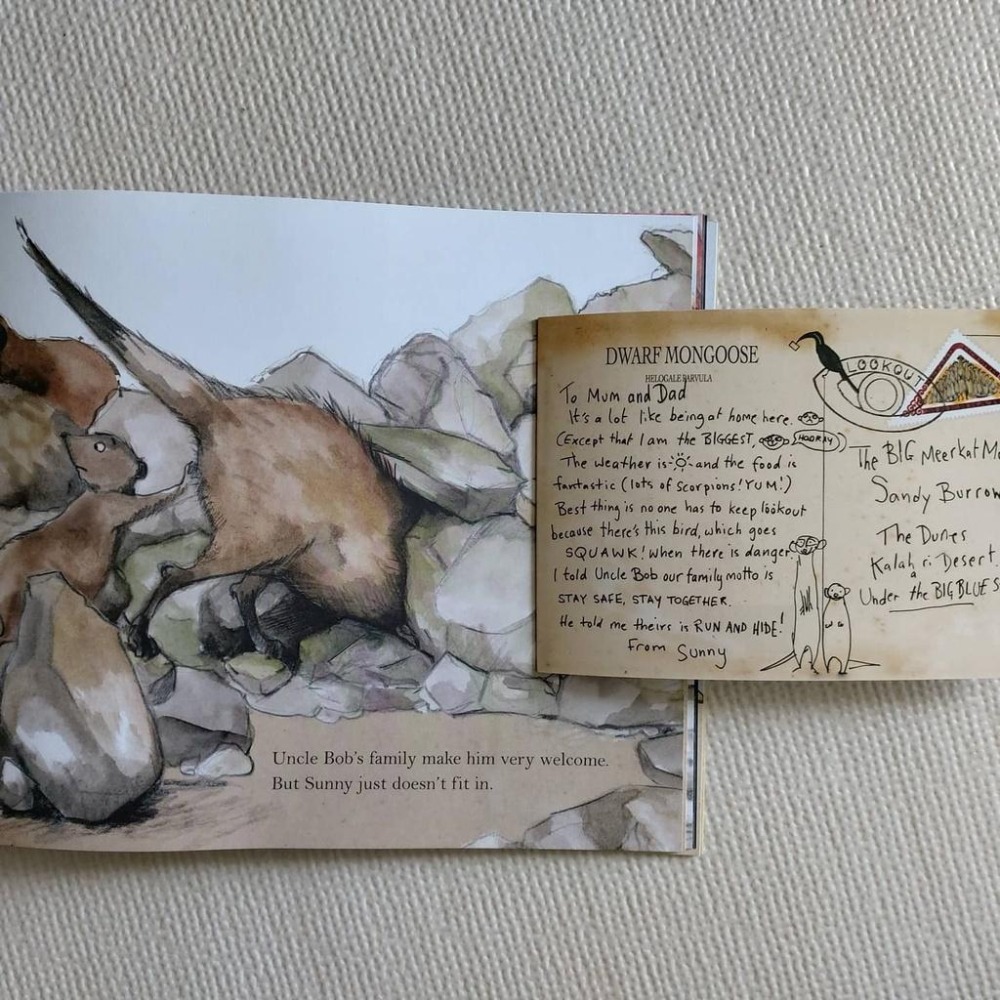 Uncle Bob's family make him very welcome.
But Sunny just doesn't fit in.
DWARF MONGOOSE
HELOGALE PARVULA
To Mum and Dad
It's a lot like being at home here.
(Except that I am the BIGGEST, HOORAY)
The weather is and the food is
fantastic (lots of scorpions! YUM!)
Best thing is no one has to keep lookout
because there's this bird, which goes
SQUAWK! when there is danger.
I told Uncle Bob our family motto is
STAY SAFE, STAY TOGETHER.
He told me theirs is RUN AND HIDE!
From Sunny
LOOKOUT
The BIG Meerkat
Sandy
The Dunes
Kalahari Desert
Under the BIG BLUE